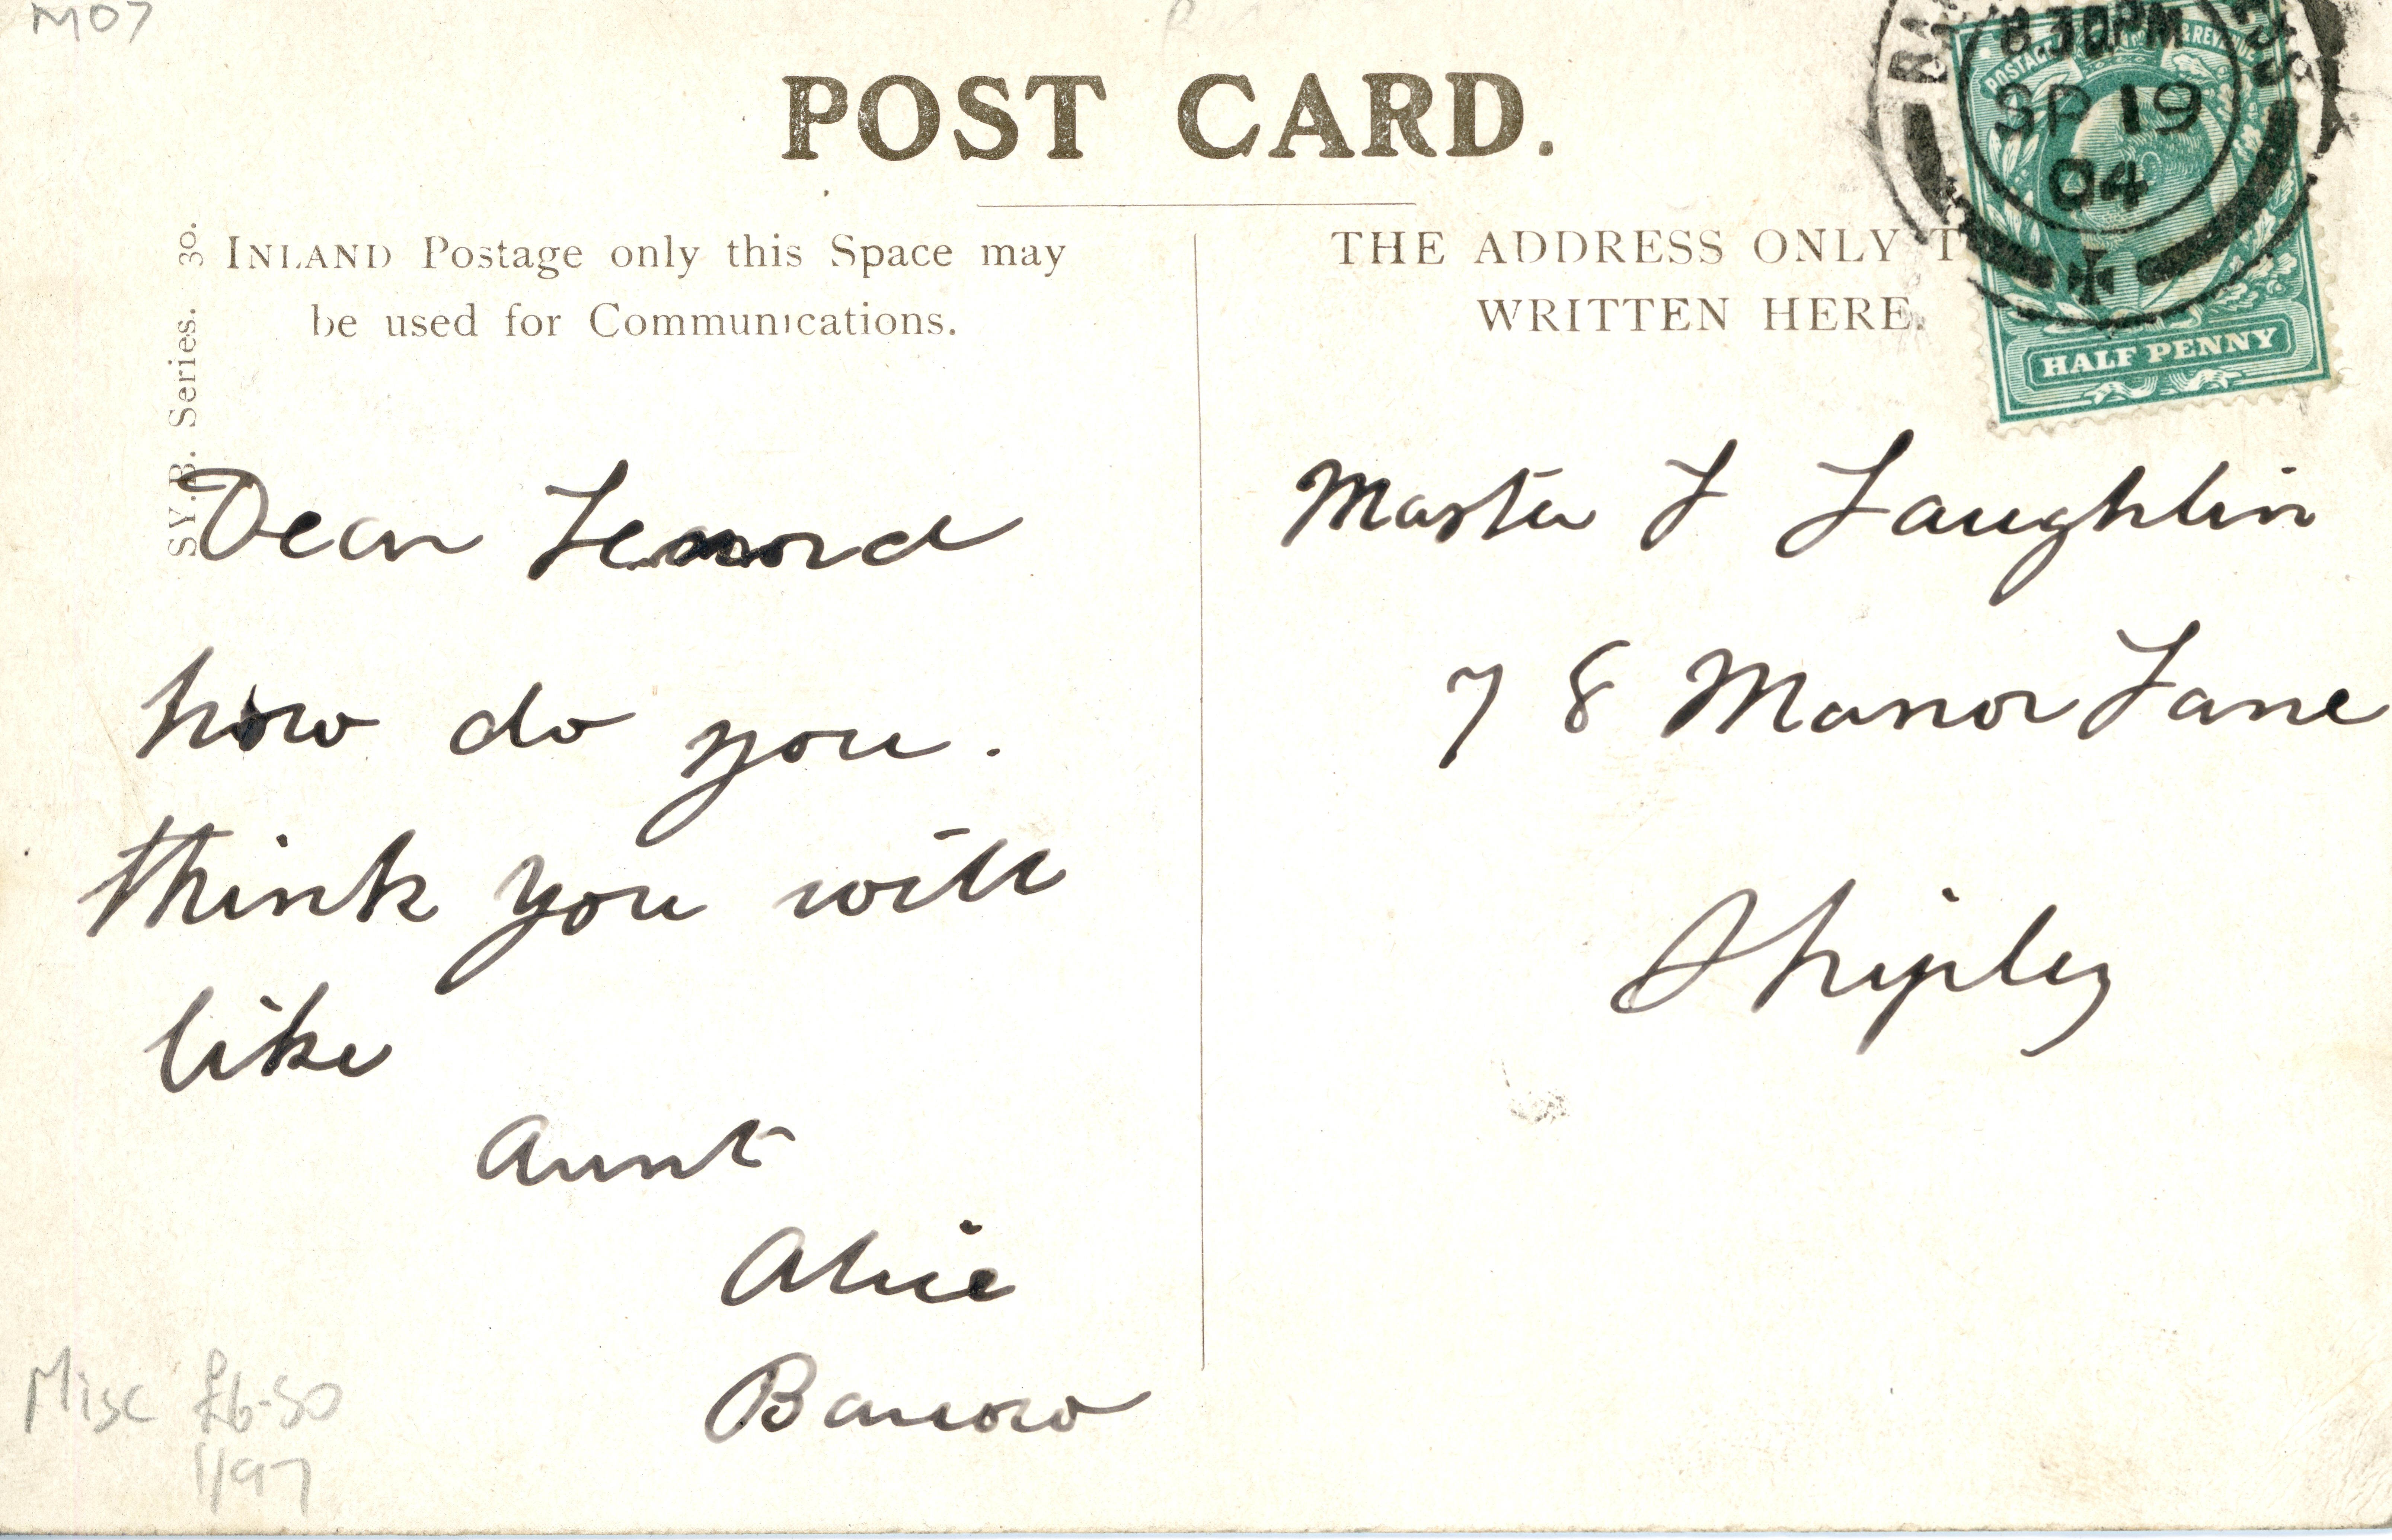 M07
POST CARD.
INLAND Postage only this Space may
be used for Communications.
THE ADDRESS ONLY T
WRITTEN HERE.
SY.B. Series. 30.
8.30PM
SP 19
04
POSTAGE & REVENUE
HALF PENNY
Dear Lenord
how do you.
think you will
like
Aunt
Alice
Barrow
Master L Laughlin
78 Manor Lane
Shipley
Misc £6-50
1/97